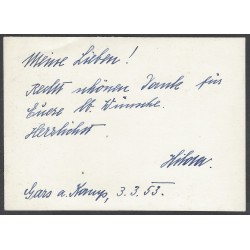 Meine Lieben!
Recht schönen Dank für
Euere lb. Wünsche.
Herzlichst
Hilda.
Gars a. Kamp, 3.3.53.